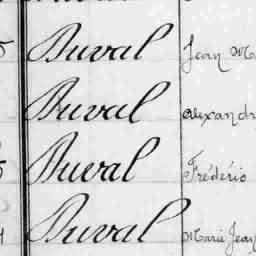 Duval Jean Ma
Duval Alexandr
Duval Frédéric
Duval Marie Jean